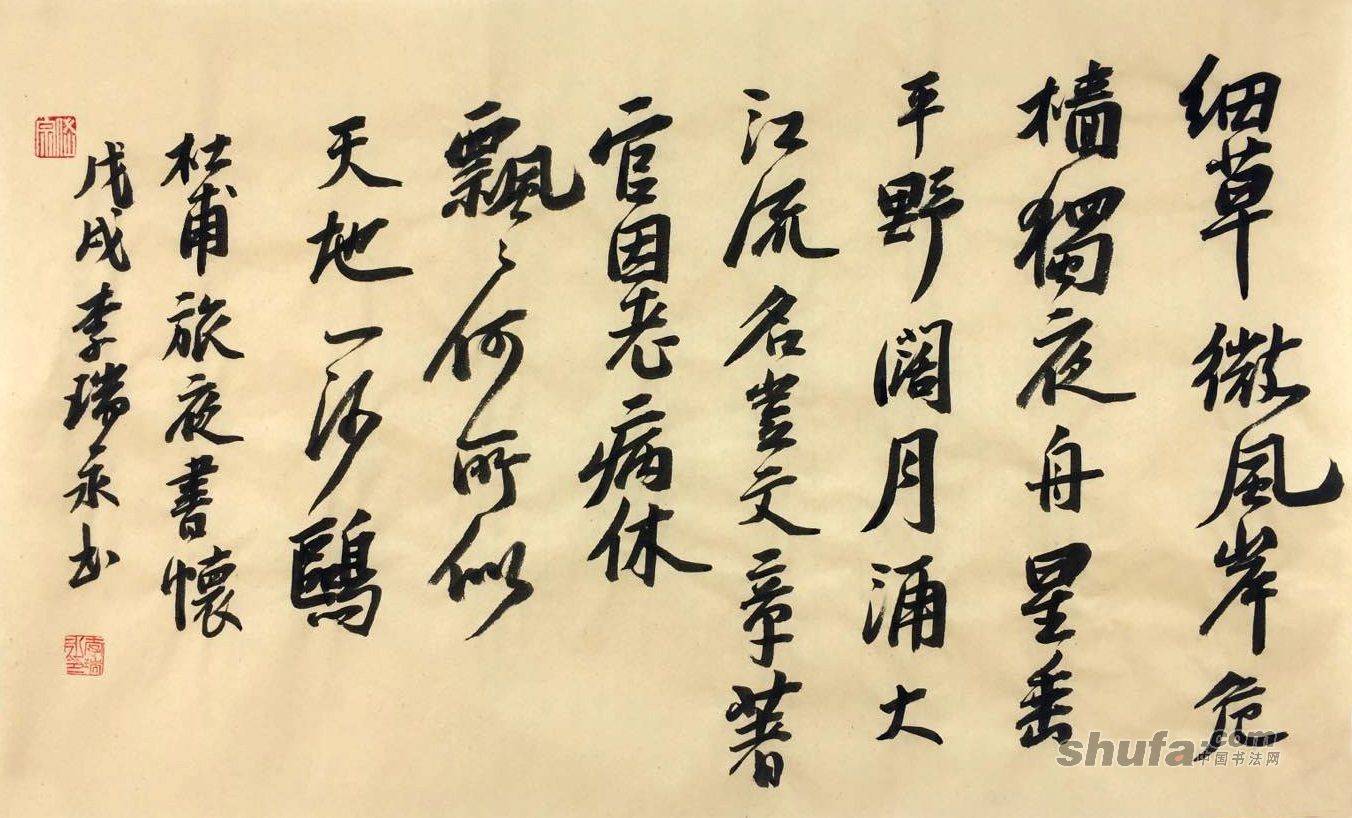 细草微風岸危
檣獨夜舟星垂
平野闊月涌大
江流名豈文章著
官因老病休
飄〻何所似
天地一沙鷗
杜甫旅夜書懷
戊戌李瑞永书
shufa.com
中国书法网